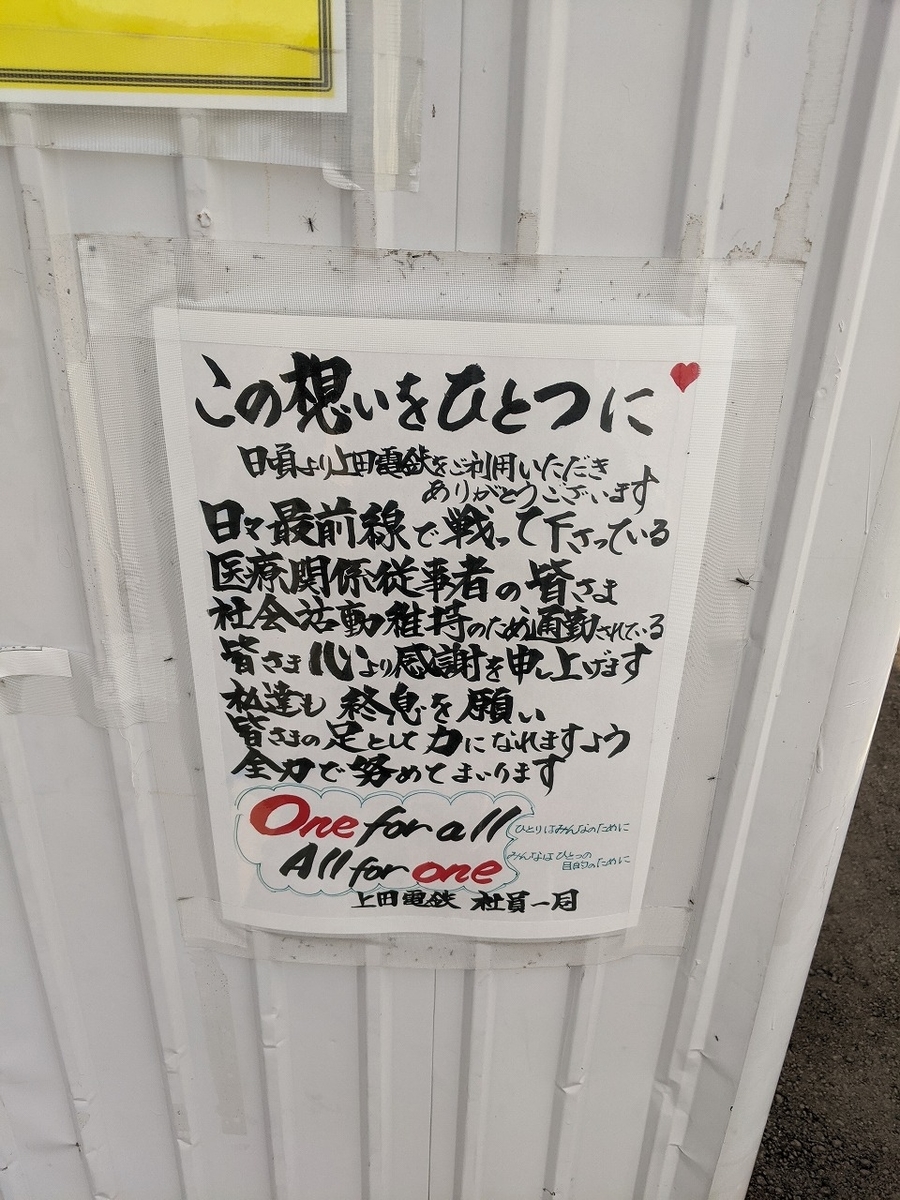 この想いをひとつに
日頃より上田電鉄をご利用いただき
ありがとうございます
日々最前線で戦って下さっている
医療関係従事者の皆さま
社会活動維持のため通勤されている
皆さま 心より感謝を申し上げます
私達も 終息を願い
皆さまの足として力になれますよう
全力で努めてまいります
One for all ひとりはみんなのために
All for one みんなはひとつの
目的のために
上田電鉄 社員一同